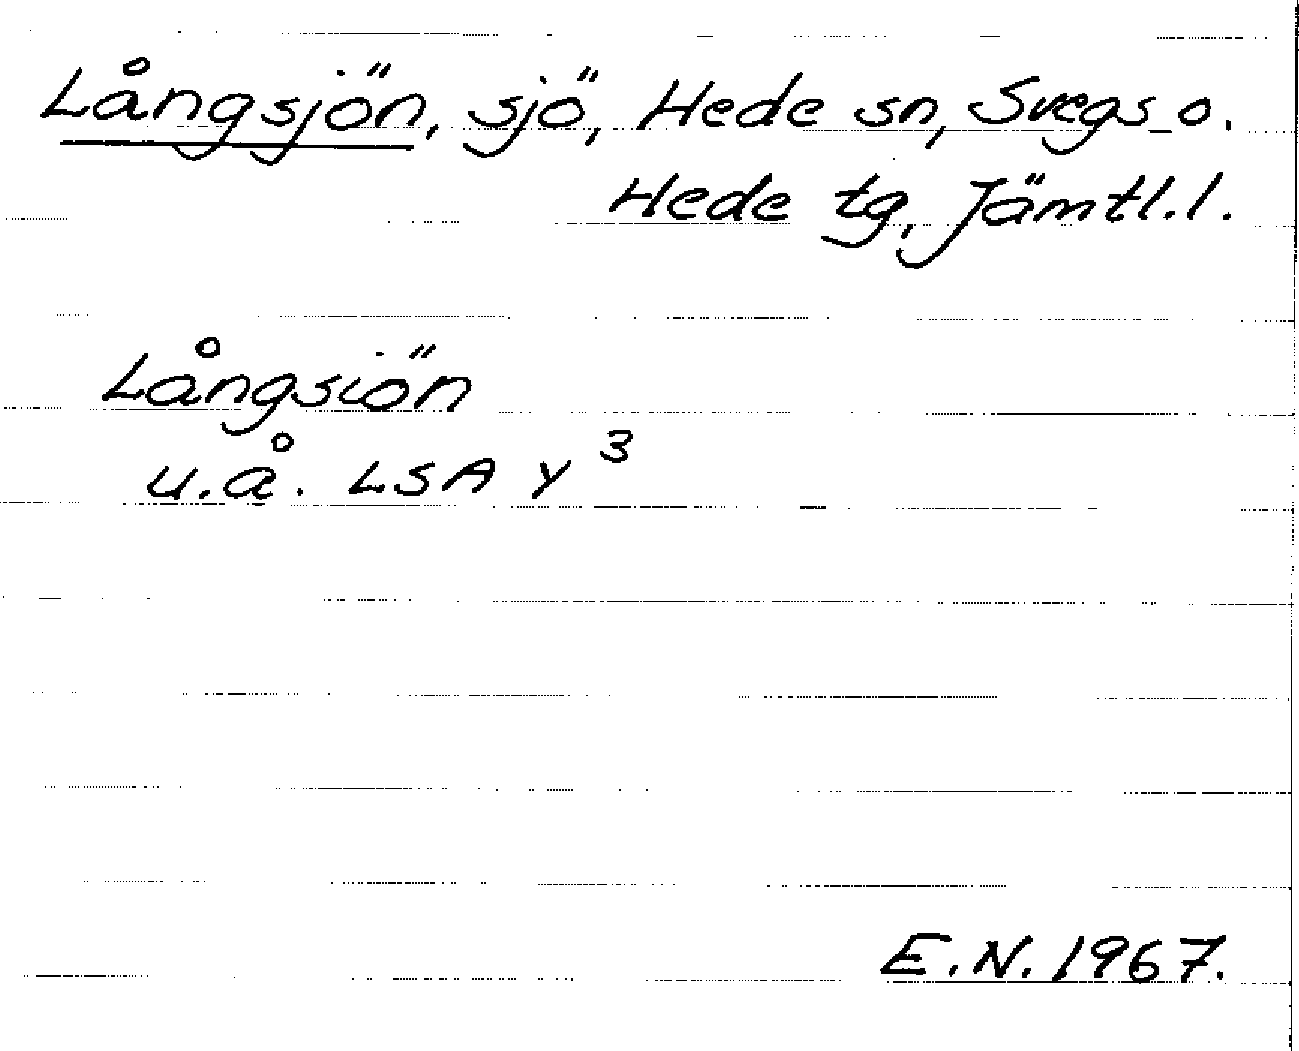 Långsjön, sjö, Hede sn, Svegs o.
Hede tg, Jämtl.l.
Långsiön
u.å. LSA Y 3
E.N. 1967.